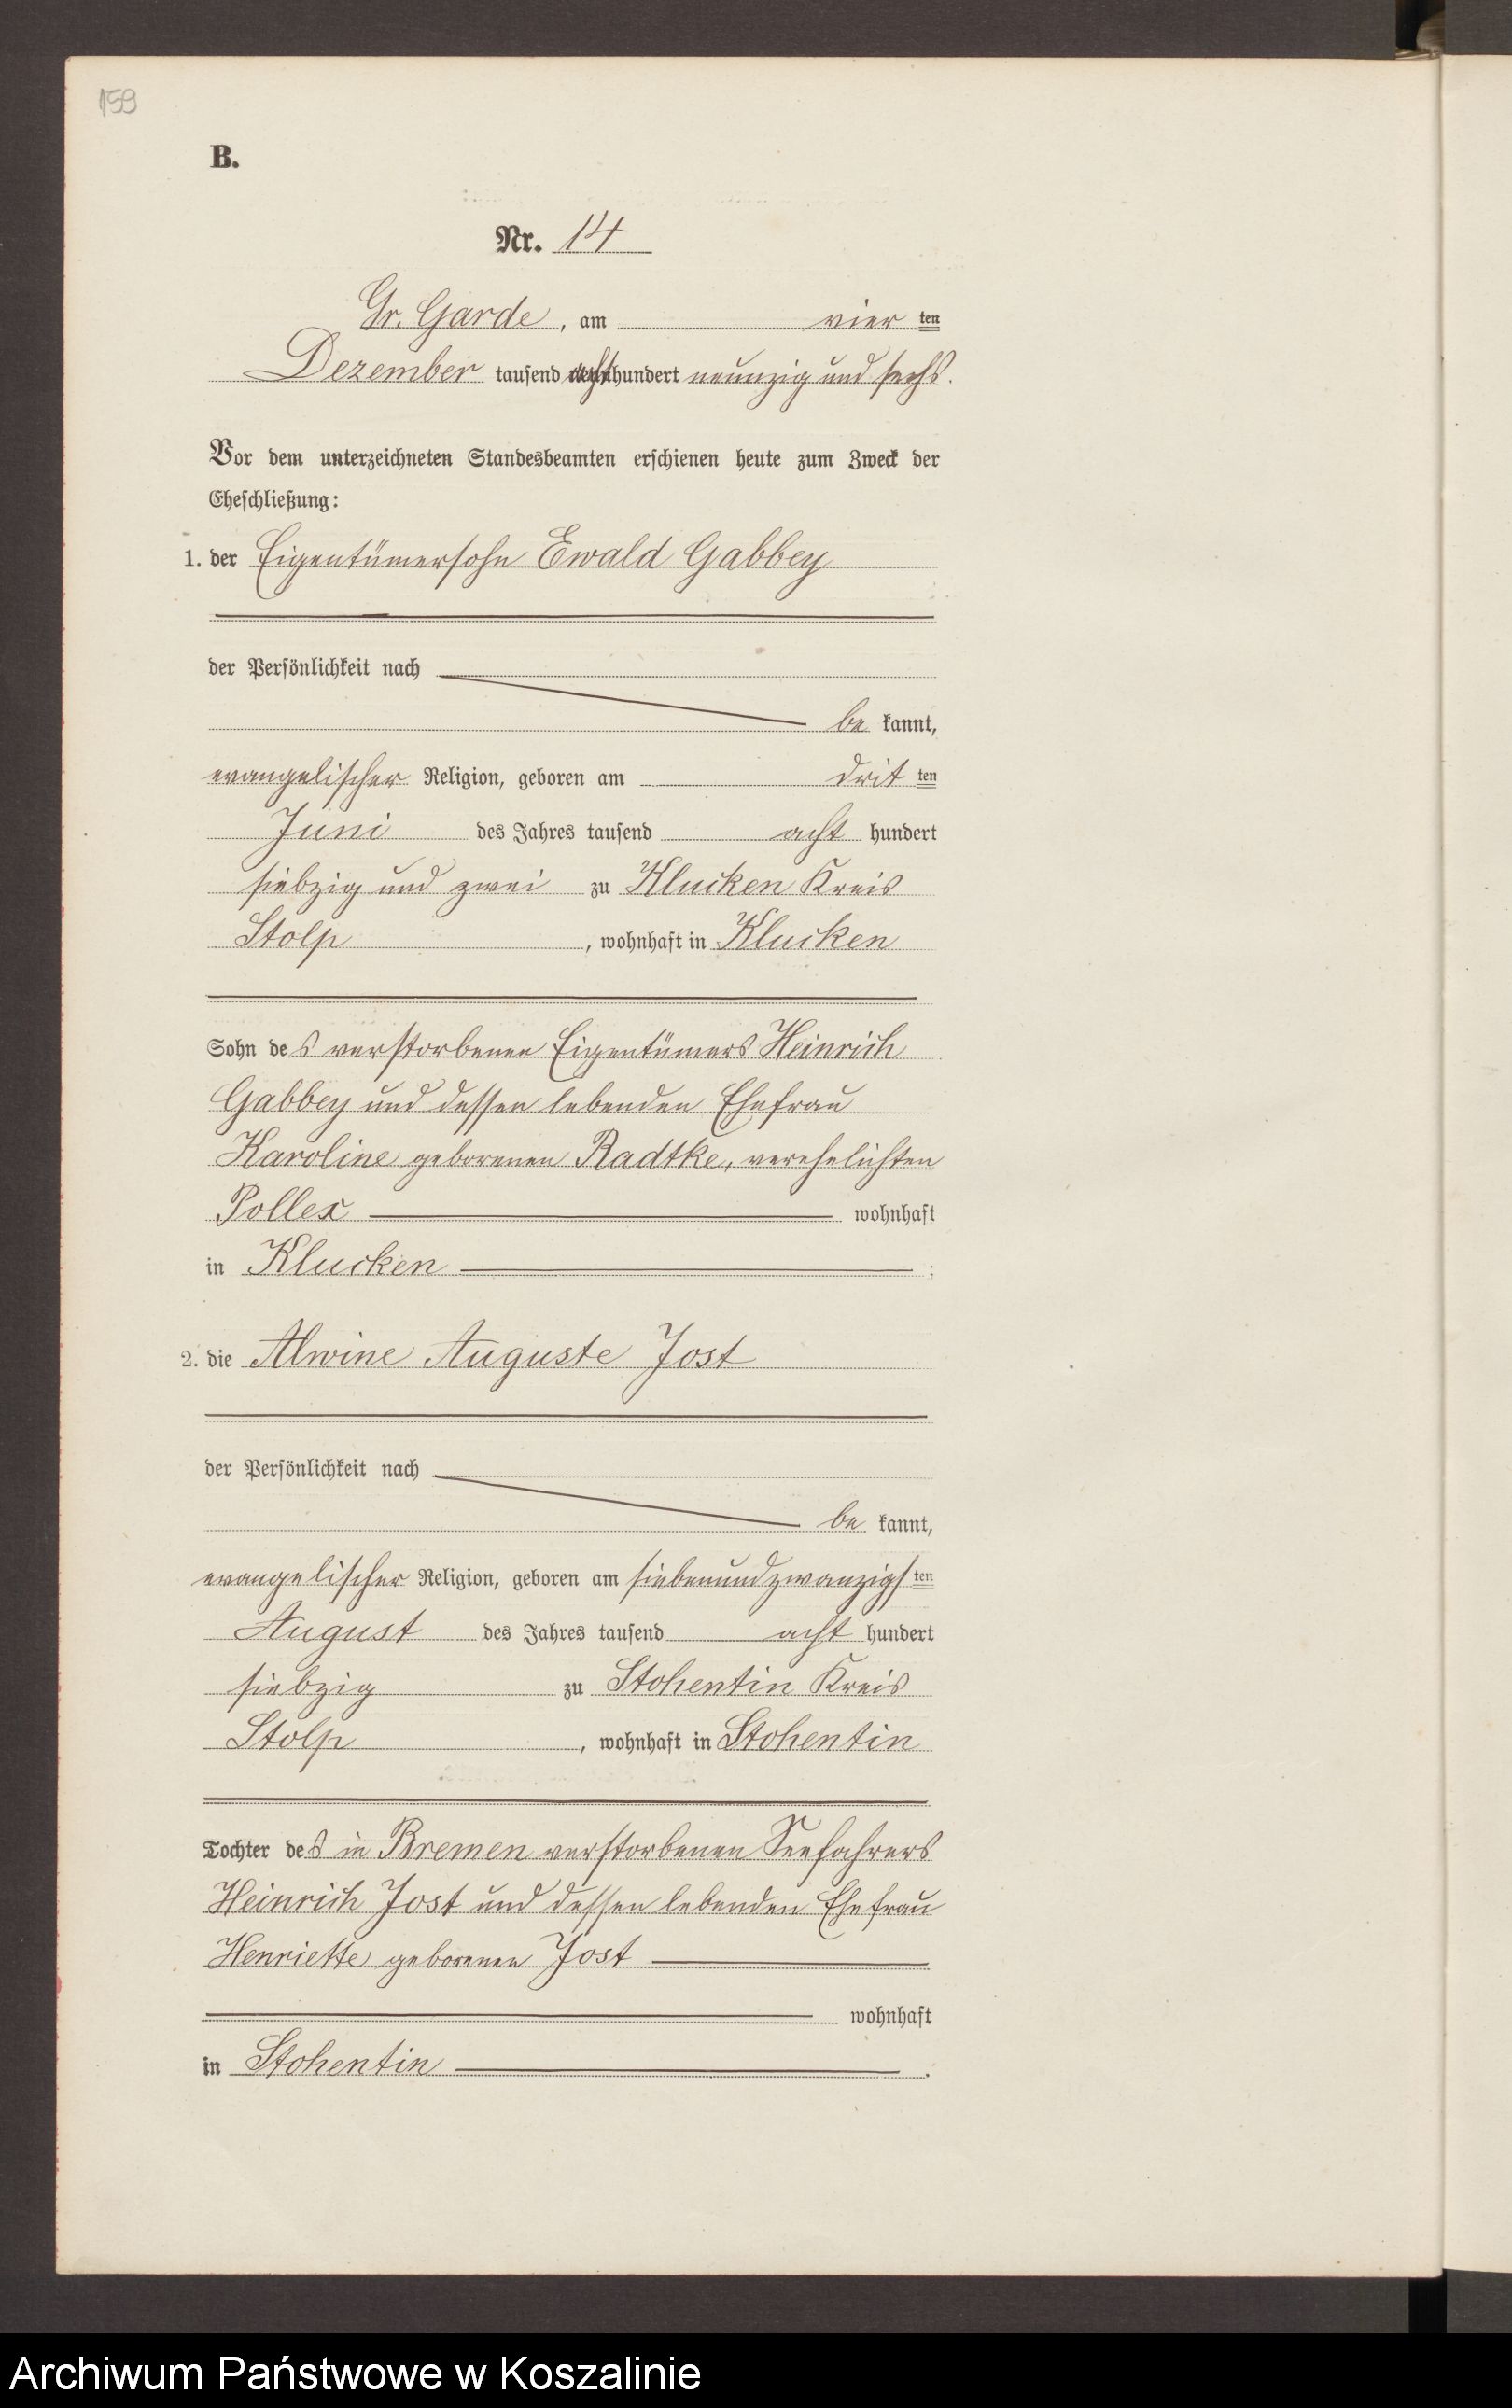 159
B.
Nr. 14
Gr. Garde, am vier ten
Dezember tausend acht hundert neunzig und sechs.
Vor dem unterzeichneten Standesbeamten erschienen heute zum Zweck der
Eheschließung:
1. der Eigentümersohn Ewald Gabbey
der Persönlichkeit nach
be kannt,
evangelischer Religion, geboren am drit ten
Juni des Jahres tausend acht hundert
siebzig und zwei zu Klucken Kreis
Stolp, wohnhaft in Klucken
Sohn des verstorbenen Eigentümers Heinrich
Gabbey und dessen lebenden Ehefrau
Karoline geborenen Radtke, verehelichten
Pollex wohnhaft
in Klucken ;
2. die Alwine Auguste Jost
der Persönlichkeit nach
be kannt,
evangelischer Religion, geboren am siebenundzwanzigs ten
August des Jahres tausend acht hundert
siebzig zu Stohentin Kreis
Stolp, wohnhaft in Stohentin
Tochter des in Bremen verstorbenen Seefahrers
Heinrich Jost und dessen lebenden Ehefrau
Henriette geborenen Jost
wohnhaft
in Stohentin .
Archiwum Państwowe w Koszalinie